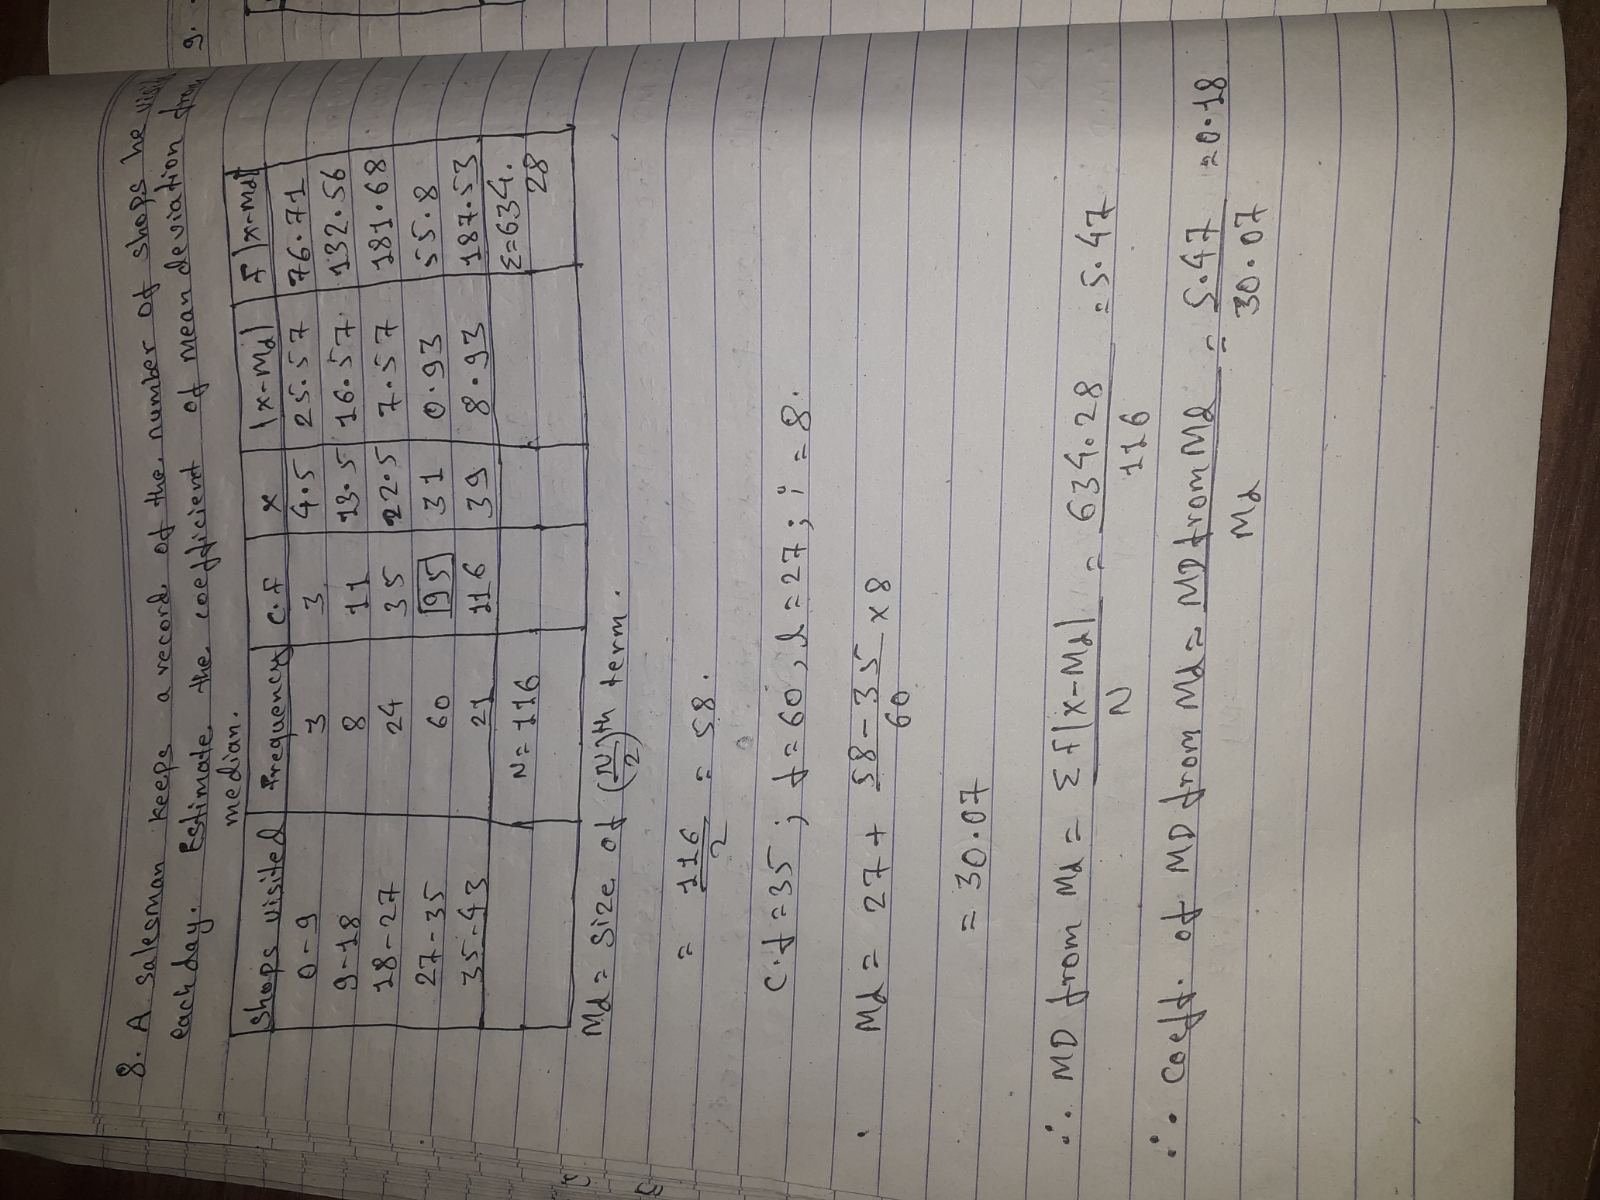 8. A salesman keeps a record of the number of shops he visit
each day. Estimate the coefficient of mean deviation from
median.
shops visited Frequency C.F x |x-Md| F|x-Md|
0-9 3 3 4.5 25.57 76.71
9-18 8 11 13.5 16.57 132.56
18-27 24 35 22.5 7.57 181.68
27-35 60 95 31 0.93 55.8
35-43 21 116 39 8.93 187.53
N=116 Σ=634.
28
Md = size of (N/2)th term.
= 116/2 = 58.
C.f=35; f=60, l=27; i=8.
Md = 27 + 58-35/60 x 8
= 30.07
∴ MD from Md = ΣF|x-Md|/N = 634.28/116 = 5.47
∴ Coeff. of MD from Md = MD from Md/Md = 5.47/30.07 = 0.18
9.